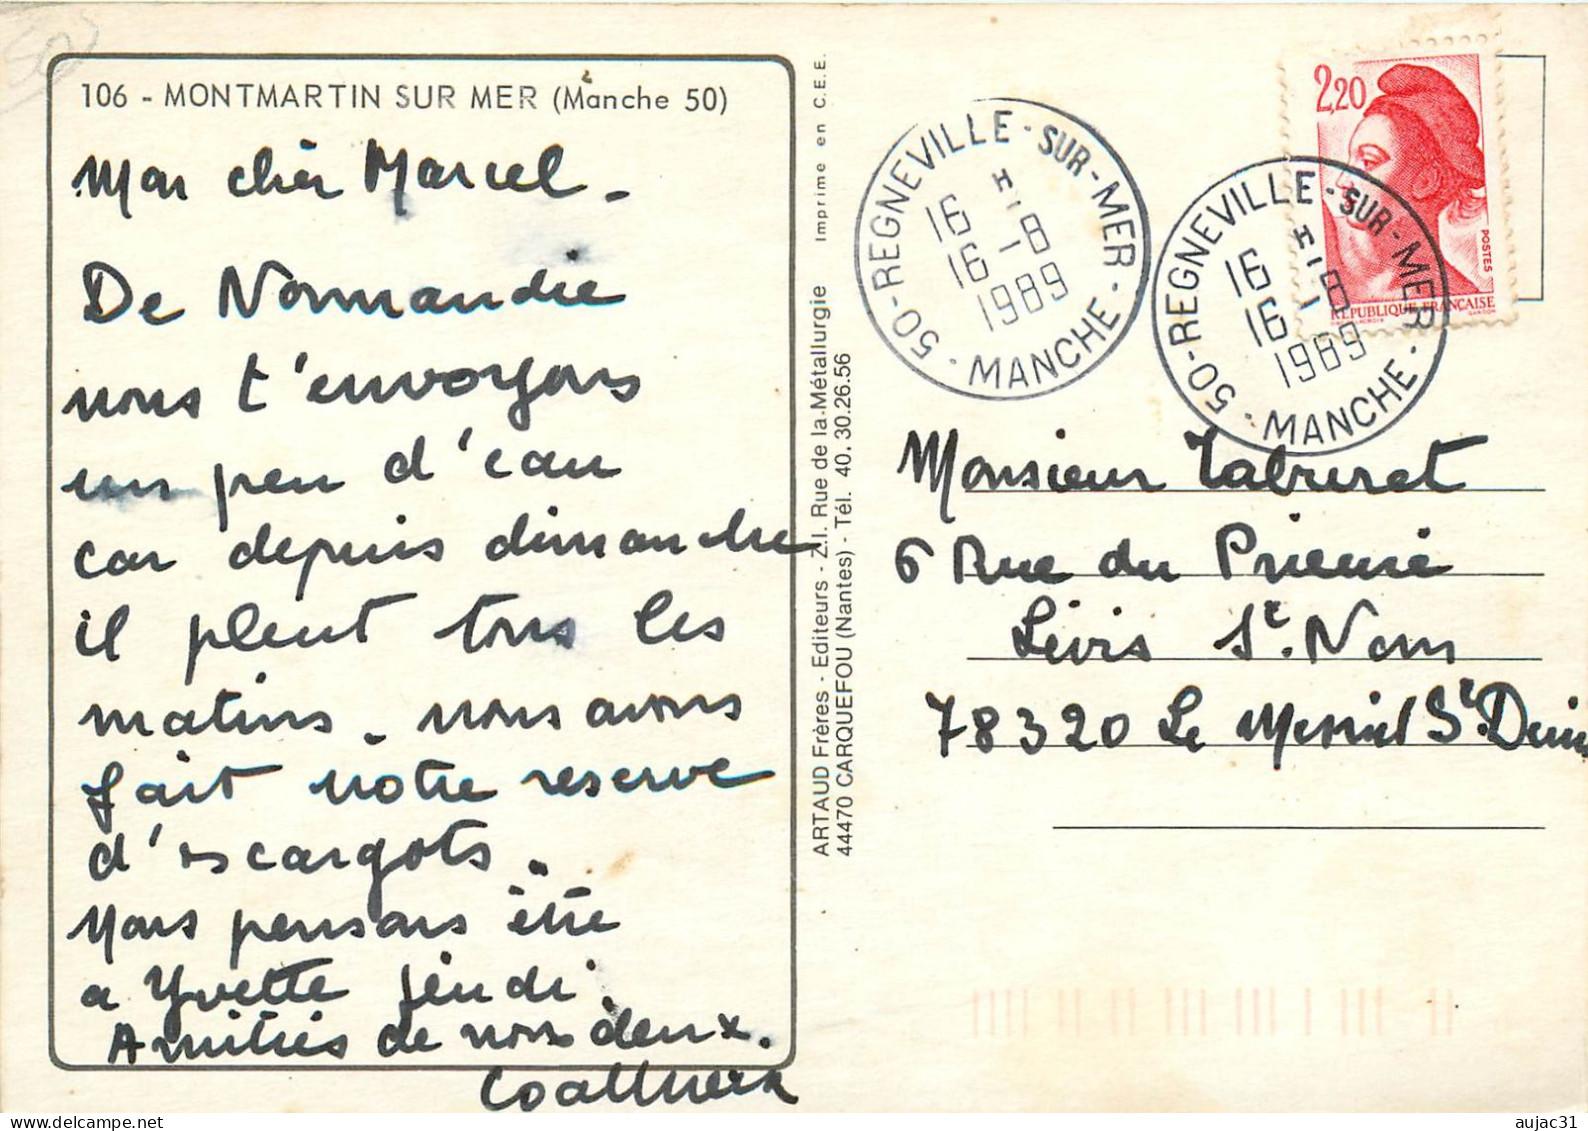 50
106 - MONTMARTIN SUR MER (Manche 50)
Mon cher Marcel -
De Normandie
nous t'envoyons
un peu d'eau
car depuis dimanche
il pleut tous les
matins. nous avons
fait notre reserve
d'escargots.
Nous pensons être
a Yvette jeudi.
Amitiés de nous deux.
Imprimé en C.E.E.
ARTAUD Frères - Editeurs - Z.I. Rue de la Métallurgie
44470 CARQUEFOU (Nantes) - Tél. 40.30.26.56
50-REGNEVILLE-SUR-MER
16 H
16 -8
1989
MANCHE
50-REGNEVILLE-SUR-MER
16 H
16 -8
1989
MANCHE
2,20
POSTES
REPUBLIQUE FRANÇAISE
Monsieur Tabouret
6 Rue du Prieuré
Lévis St. Nom
78320 Le Mesnil St. Denis
aujac31